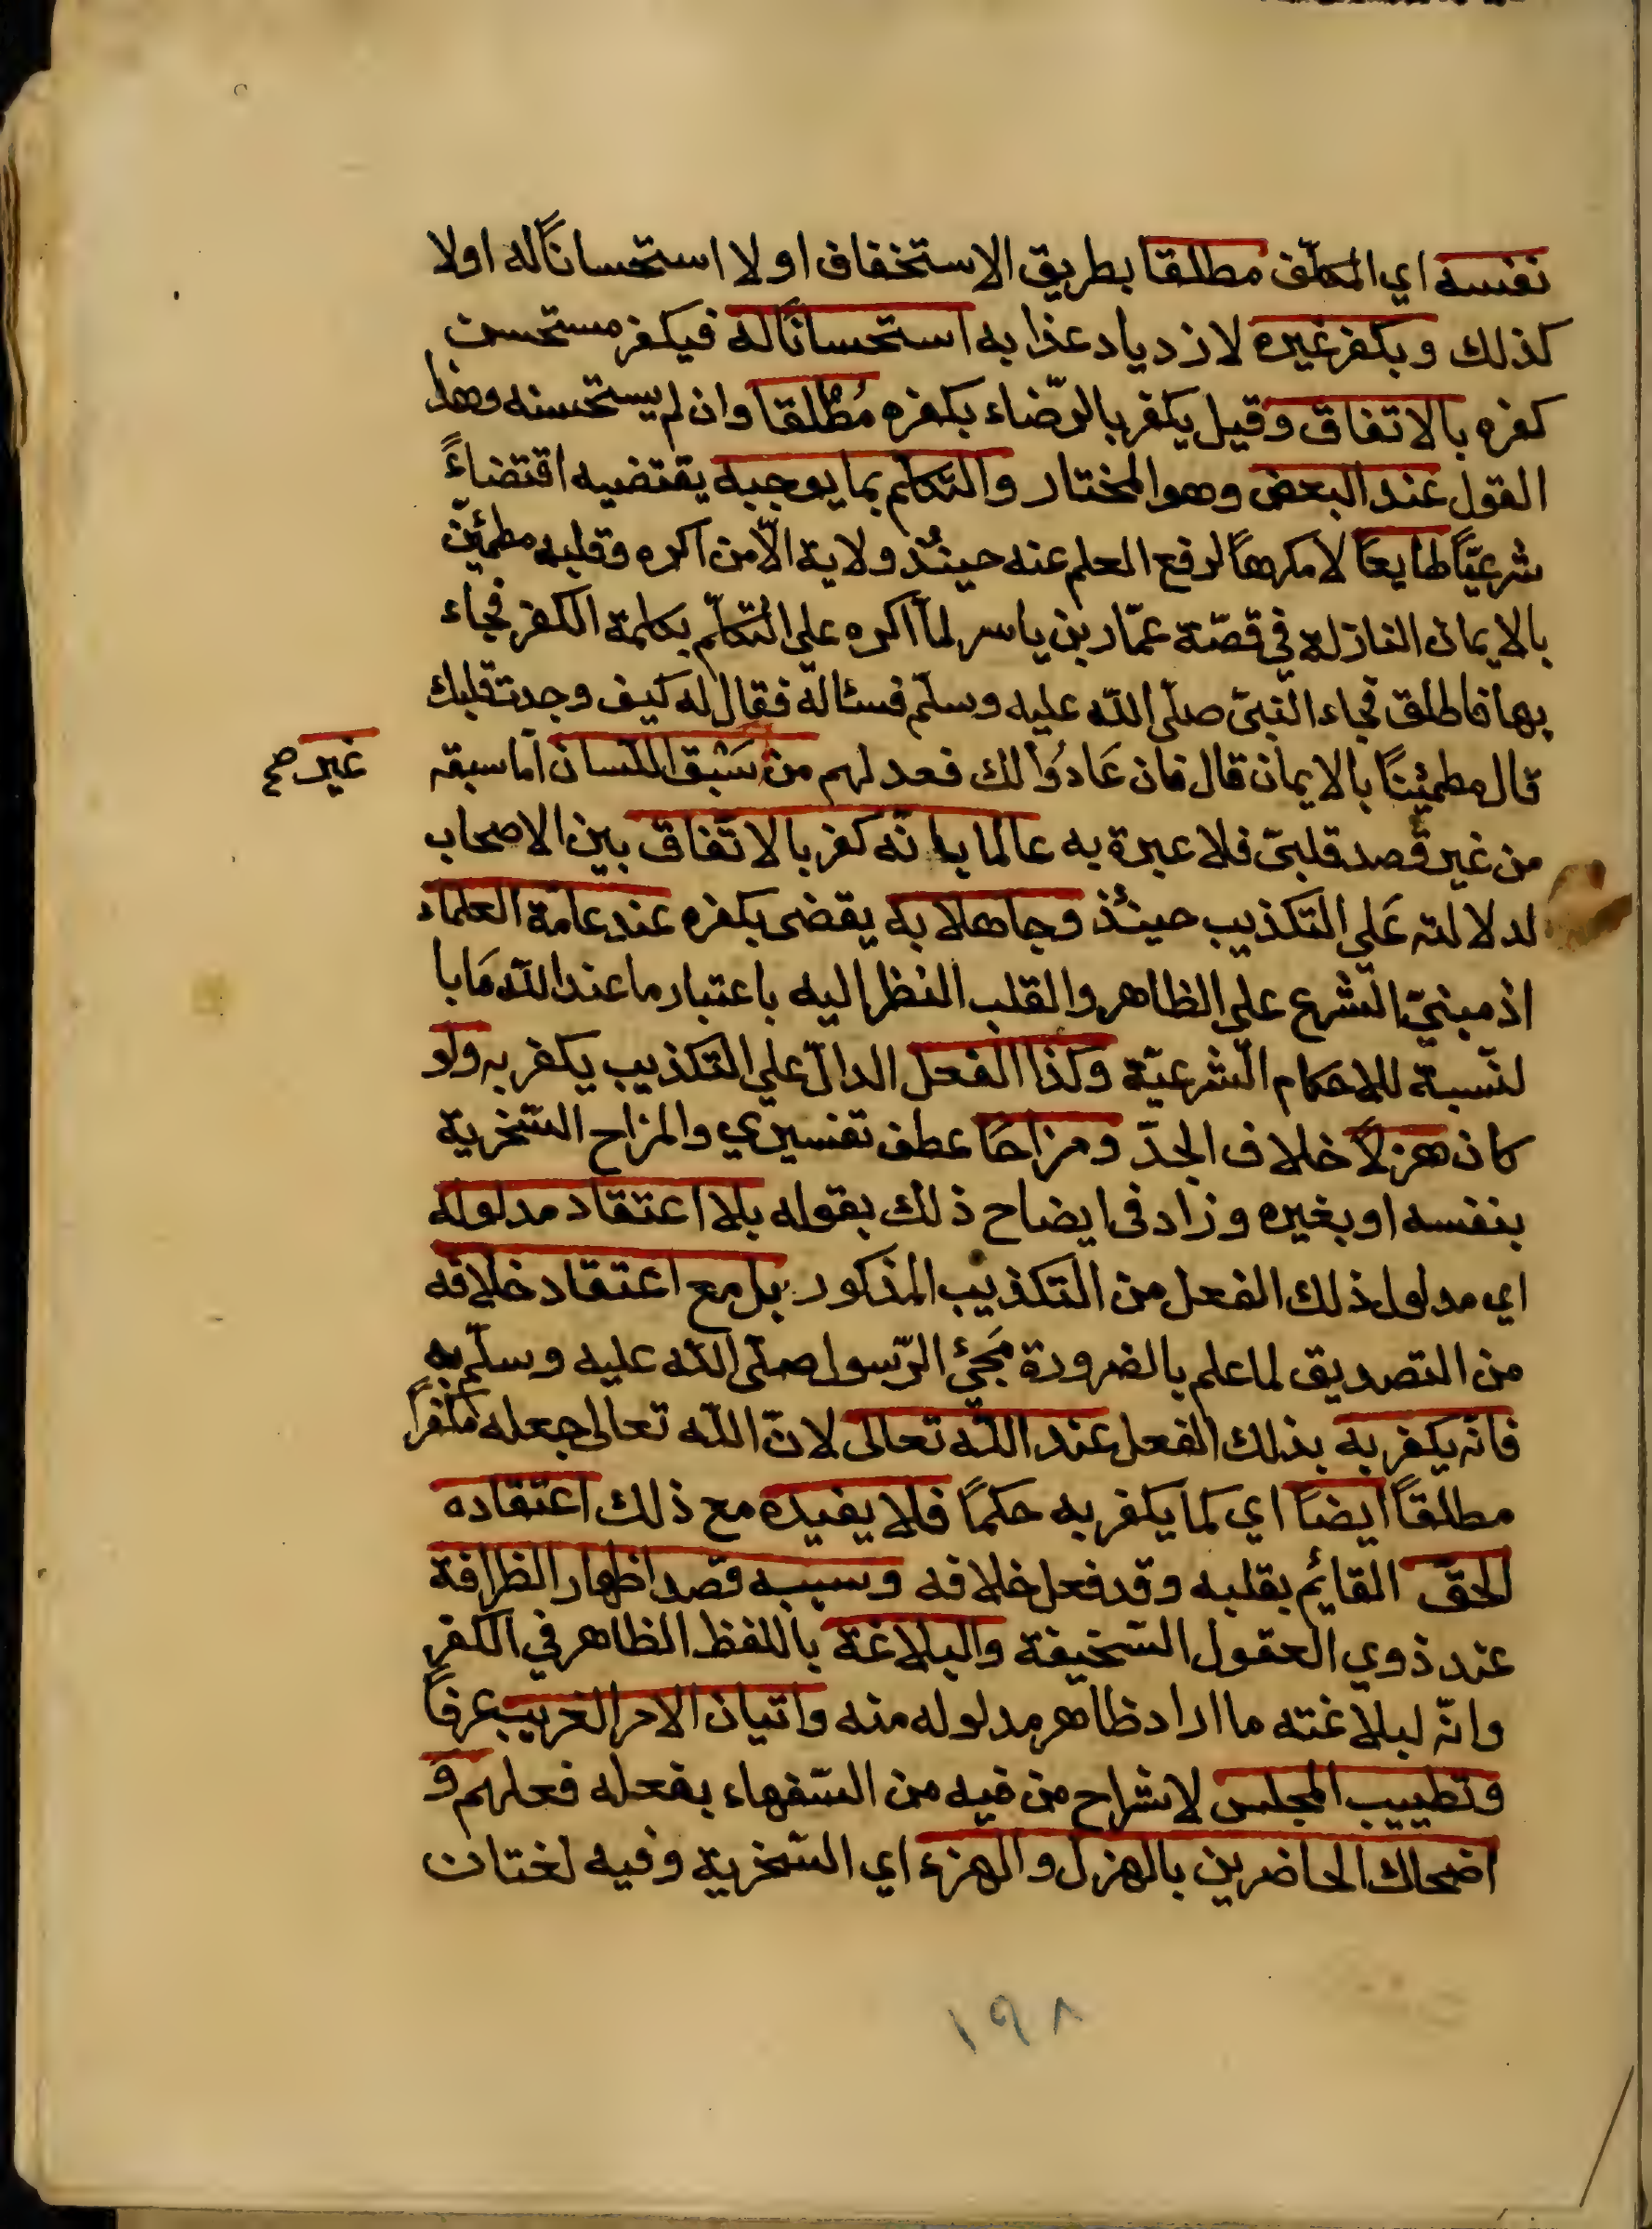 نفسه اي المكلّف مطلقا بطريق الاستخفاف اولا استحساناً له اولا
كذلك وبكفر غيره لازدياد عذابه استحساناً له فيكفر مستحسن
كفره بالاتفاق وقيل يكفر بالرّضاء بكفره مُطْلقا وان لم يستحسنه وهذا
القول عند البعض وهو المختار والتكلّم بما يوجبه يقتضيه اقتضاءً
شرعيّاً طايعاً لا مكرهاً لرفع العلم عنه حينئذ ولاية الّا من اكره وقلبه مطمئِنّ
بالايمان النازلة في قصّة عمّار بن ياسر لمّا اكره على التكلّم بكلمة الكفر فجاء
بها فاطلق فجاء النبيّ صلّى الله عليه وسلّم فسئاله فقال له كيف وجدت قلبك
قال مطمئِنّاً بالايمان قال فان عَادُوا لك فعد لهم من سَبْق اللسان امّا سبقه
غير صح
من غير قصد قلبيّ فلا عبرة به عالما بانّه كفر بالاتّفاق بين الاصحاب
لدلالته عَلى التكذيب حينئذ وجاهلا به يقضى بكفره عند عامّة العلماء
اذ مبنيّ الشرع على الظاهر والقلب النظر اليه باعتبار ما عند الله مَا با
لنّسبة للاحكام الشرعيّة وكذا الفعل الدالّ على التكذيب يكفر به ولو
كان هزلاً خلاف الجدّ ومزاحًا عطف تفسيري والمزاح السّخرية
بنفسه او بغيره وزاد في ايضاح ذلك بقوله بلا اعتقاد مدلوله
اي مدلول ذلك الفعل من التكذيب المذكور بل مع اعتقاد خلافه
من التصديق لما علم بالضرورة مَجِئ الرّسول صلّى الله عليه وسلّم به
فانه يكفر به بذلك الفعل عند الله تعالى لانّ الله تعالى جعله مكفراً
مطلقاً ايضاً اي كما يكفر به حكماً فلا يفيده مع ذلك اعتقاده
الحقّ القائم بقلبه وقد فعل خلافه وسببه قصد اظهار الظرافة
عند ذوي العقول السّخيفة والبلاغة باللفظ الظاهر في الكفر
وانّه لبلاغته ما اراد ظاهر مدلوله منه واتيان الامر الغريب عرفاً
وتطييب المجلس لانشراح من فيه من السّفهاء بفعله فعلهم و
اضحاك الحاضرين بالهزل والهزء اي السّخرية وفيه لغتان
١٩٨